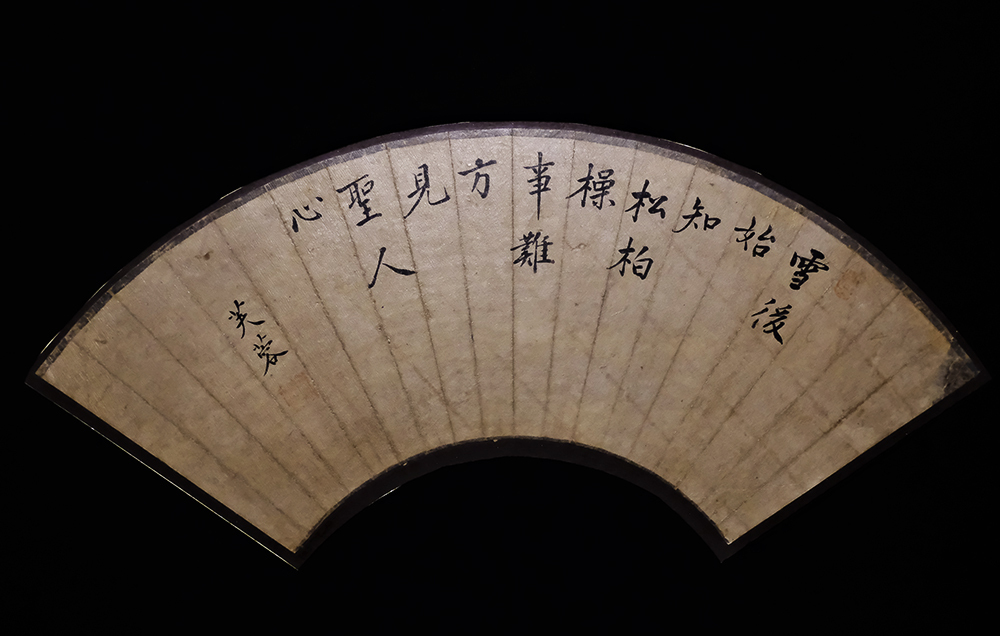 雪後
始
知
松柏
操
事難
方
見
聖人
心
芙蓉